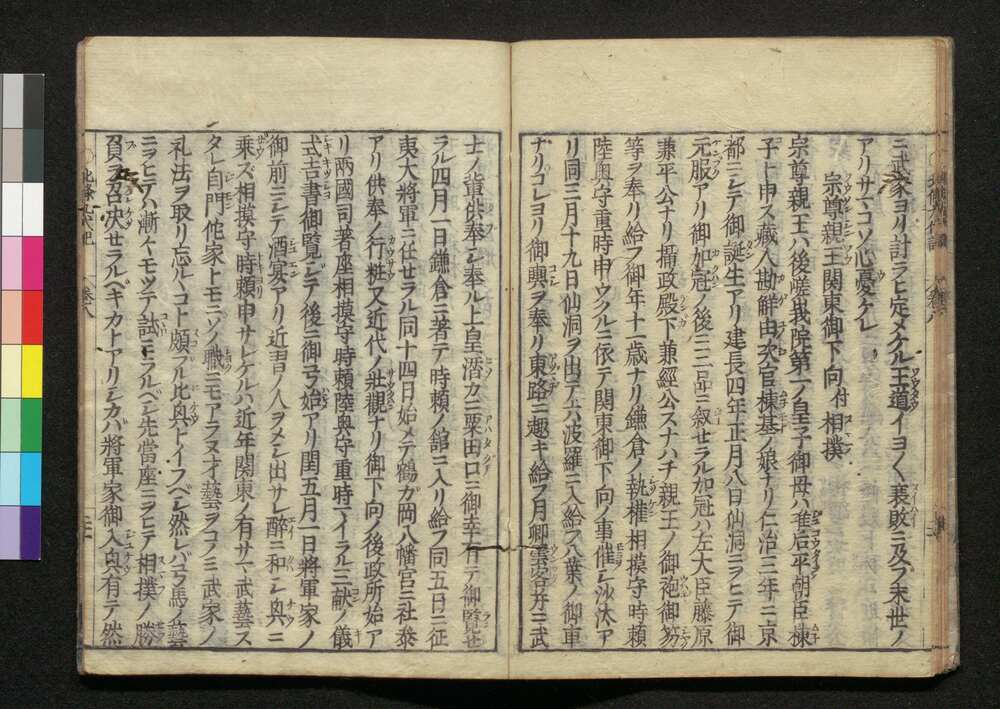 ニ武家ヨリ計ラヒ定メケル王道イヨ〱衰敗ニ及フ末世ノ
アリサマコソ心憂ケレ
宗尊親王関東御下向付相撲
宗尊親王ハ後嵯峨院第一ノ皇子御母ハ准后平朝臣棟
子ト申ス蔵人勘解由次官棟基ノ娘ナリ仁治三年ニ京
都ニシテ御誕生アリ建長四年正月八日仙洞ニヲヒテ御
元服アリ御加冠ノ後三品ニ叙セラル加冠ハ左大臣藤原
兼平公ナリ摂政殿下兼経公スナハチ親王ノ御袍御笏
等ヲ奉リ給フ御年十一歳ナリ鎌倉ノ執権相摸守時頼
陸奥守重時申ウクルニ依テ関東御下向ノ事催シ沙汰ア
リ同三月十九日仙洞ヲ出テ六波羅ニ入給フ八葉ノ御車
ナリコレヨリ御輿ヲ奉リ東路ニ趣キ給フ月卿雲客并ニ武
士ノ輩供奉シ奉ル上皇潜カニ粟田口ニ御幸有テ御覧セ
ラル四月一日鎌倉ニ著テ時頼ノ舘ニ入リ給フ同五日ニ征
夷大将軍ニ任セラル同十四日始メテ鶴ガ岡八幡宮ニ社参
アリ供奉ノ行粧又近代ノ壮觀ナリ御下向ノ後政所始ア
リ兩國司著座相摸守時頼陸奥守重時マイラル三献ノ儀
式吉書御覧シテ後ニ御弓始アリ閏五月一日将軍家ノ
御前ニシテ酒宴アリ近習ノ人ヲメシ出サレ醉ニ和シ興ニ
乗ズ相摸守時頼申サレケルハ近年関東ノ有サマ武藝ス
タレ自門侘家トモニソノ職ニモアラヌ才藝ヲコノミ武家ノ
礼法ヲ取リ忘ルヽコト頗フル比興トイフベシ然レバ弓馬ノ藝
ニヲヒテハ漸々ニモツテ試ミラルベシ先當座ニヲヒテ相撲ノ勝
負ヲ召决セラルベキカトアリシカバ将軍家御入興有テ然
北條九代記
巻八